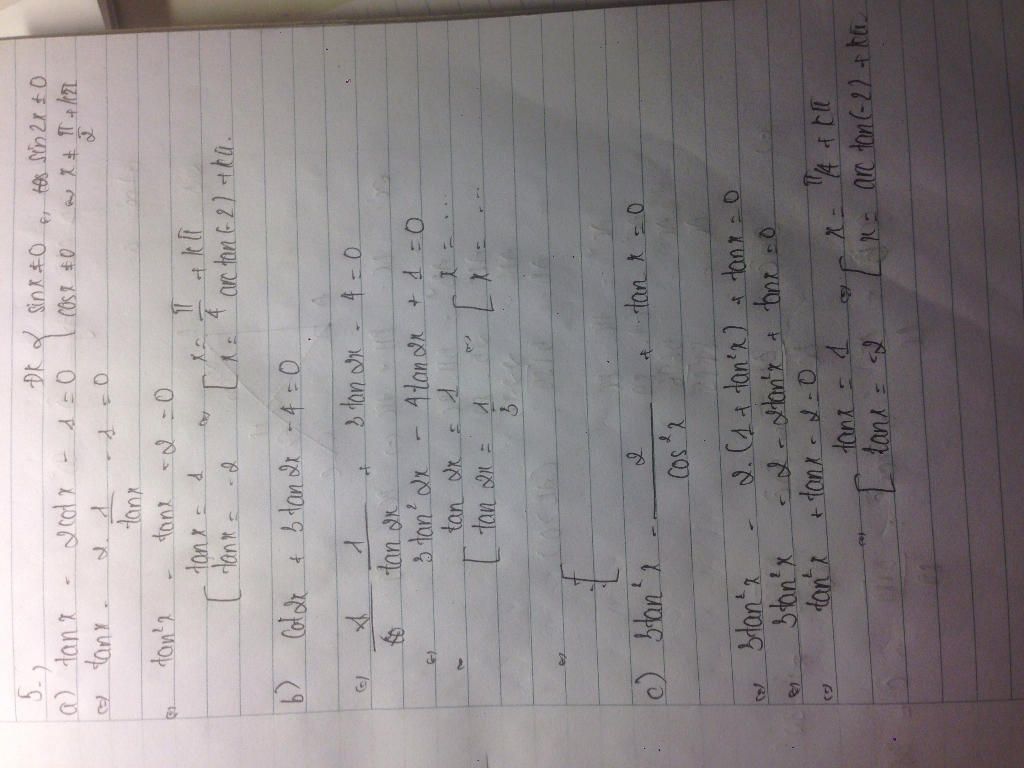 5.)
a) tanx - 2cotx - 1 = 0 ĐK { sinx ≠ 0 ⇔ sin2x ≠ 0
⇔ tanx - 2. 1/tanx - 1 = 0 { cosx ≠ 0 ⇔ x ≠ π/2 + kπ
⇔ tan²x - tanx - 2 = 0
[ tanx = 1 ⇔ [ x = π/4 + kπ
[ tanx = -2 [ x = arctan(-2) + kπ.
b) cot2x + 3tan2x - 4 = 0
⇔ 1/tan2x + 3tan2x - 4 = 0
⇔ 3tan²2x - 4tan2x + 1 = 0
⇔ [ tan2x = 1 ⇔ [ x = ...
[ tan2x = 1/3 [ x = ...
⇔
c) 3tan²x - 2/cos²x + tanx = 0
⇔ 3tan²x - 2.(1 + tan²x) + tanx = 0
⇔ 3tan²x - 2 - 2tan²x + tanx = 0
⇔ tan²x + tanx - 2 = 0
⇔ [ tanx = 1 ⇔ [ x = π/4 + kπ
[ tanx = -2 [ x = arctan(-2) + kπ.